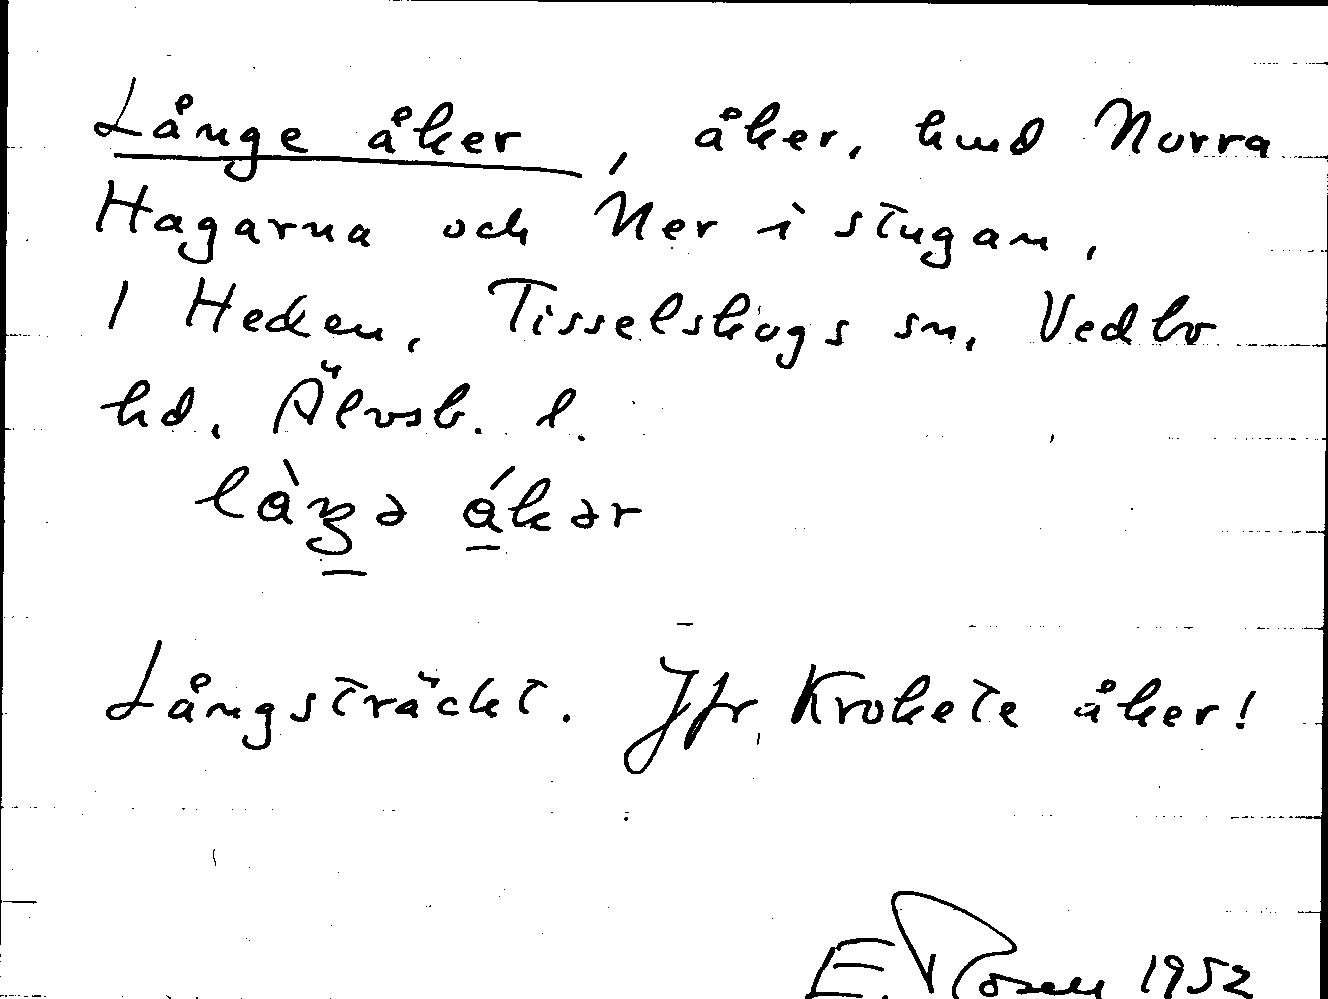 Långe åker, åker, hmd Norra
Hagarna och Ner i stugan,
1 Heden, Tisselskogs sn, Vedbo
hd, Älvsb. l.
làŋə ákər
Långsträckt. Jfr Krokete åker!
E. Rosell 1952